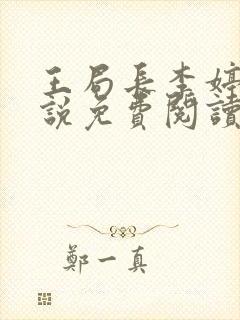 王局長李婷
說免費閱讀
鄭一真